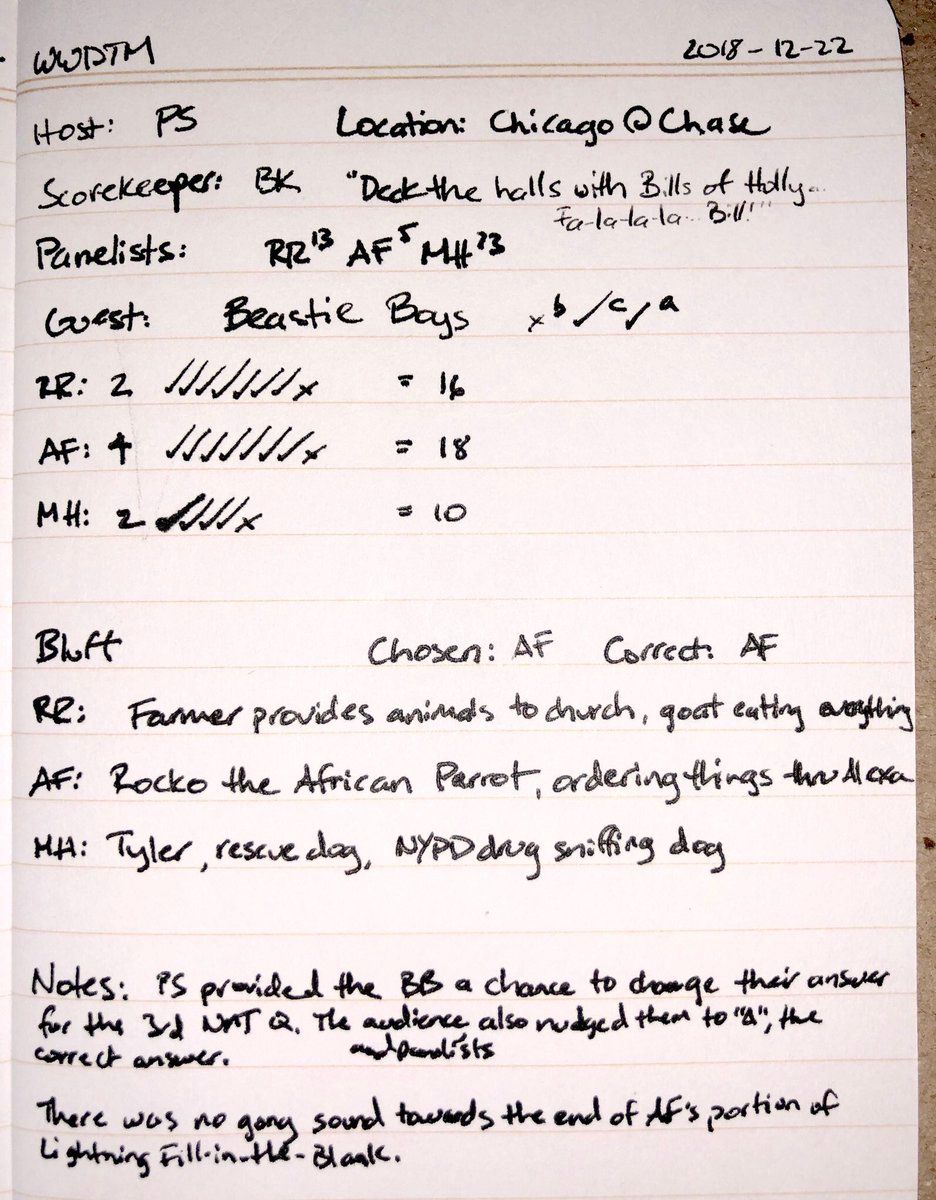 WWDTM 2018-12-22
Host: PS Location: Chicago @ Chase
Scorekeeper: BK "Deck the halls with Bills of Holly...
Fa-la-la-la... Bill!"
Panelists: RR¹³ AF⁵ MH²³
Guest: Beastie Boys ×b ✓c ✓a
RR: 2 ✓✓✓✓✓✓✓× = 16
AF: 4 ✓✓✓✓✓✓✓× = 18
MH: 2 ✓✓✓✓× = 10
Bluff Chosen: AF Correct: AF
RR: Farmer provides animals to church, goat eating everything
AF: Rocko the African Parrot, ordering things thru Alexa
MH: Tyler, rescue dog, NYPD drug sniffing dog
Notes: PS provided the BB a chance to change their answer
for the 3rd NMJ Q. The audience also nudged them to "A", the
and panelists
correct answer.
There was no gong sound towards the end of AF's portion of
Lightning Fill-in-the-Blank.